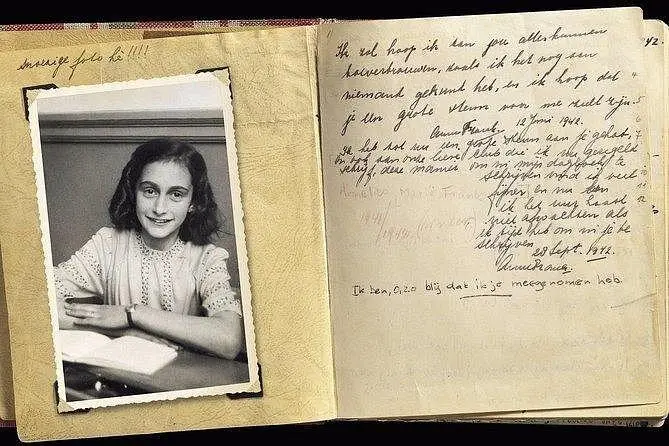 snoezige foto hè!!!!
42.
Ik zal hoop ik aan jou alles kunnen
toevertrouwen, zoals ik het nog aan
niemand gekund heb, en ik hoop dat
je een grote steun voor me zult zijn.
Anne Frank. 12 Juni 1942.
Ik heb tot nu een grote steun aan je gehad,
en ook aan onze lieve club die ik nu geregeld
schrijf, deze manier om in mijn dagboek te
schrijven vind ik veel
fijner en nu kan
ik het uur haast
niet afwachten als
ik tijd heb om in je te
schrijven
28 Sept. 1942.
Anne Frank.
Ik ben, O, zo blij dat ik je meegenomen heb.